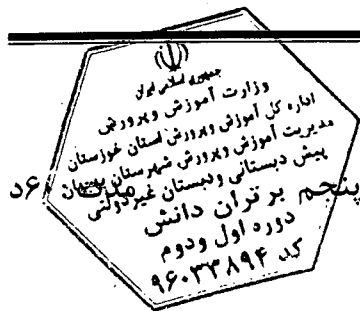 جمهوری اسلامی ایران
وزارت آموزش و پرورش
اداره کل آموزش و پرورش استان خوزستان
مدیریت آموزش و پرورش شهرستان بهبهان
پیش دبستانی و دبستان غیردولتی
پنجم
۶۰د
برتران دانش
دوره اول و دوم
کد ۹۶۰۳۳۸۹۴